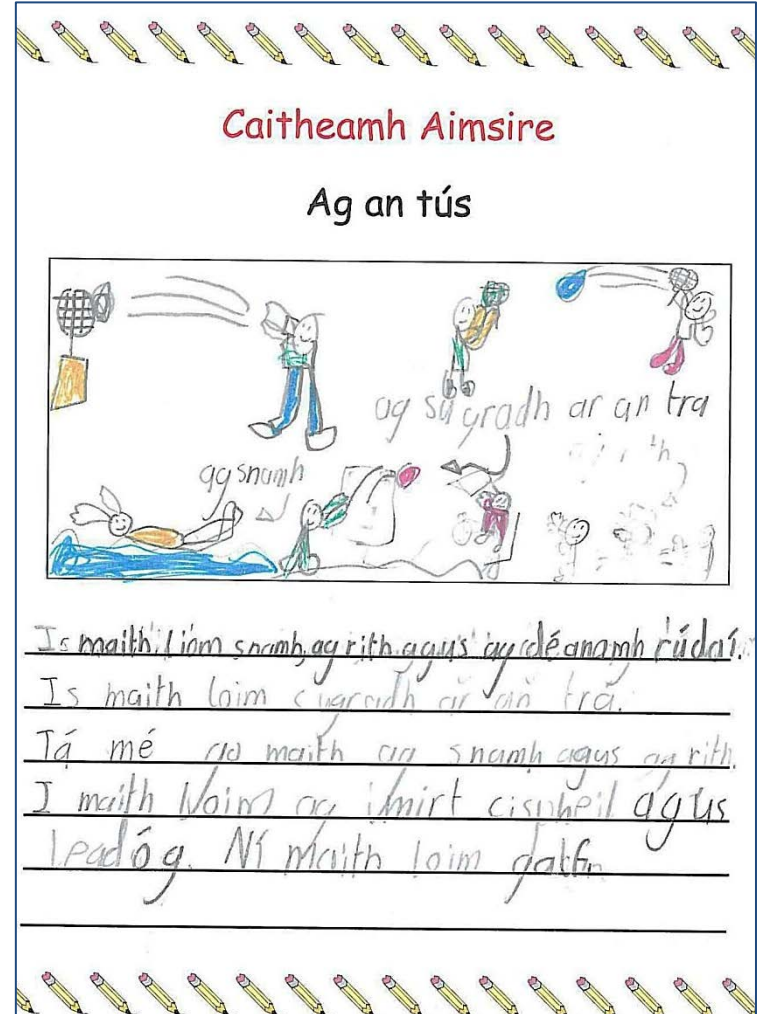 Caitheamh Aimsire
Ag an tús
ag sugradh ar an tra
ag snamh
Is maith liom snamh, ag rith agus ag déanamh rúdaí.
Is maith loim sugradh ar an trá.
Tá mé go maith ag snamh agus ag rith.
I maith loim ag imirt agus
leadóg. Ní maith loim galf